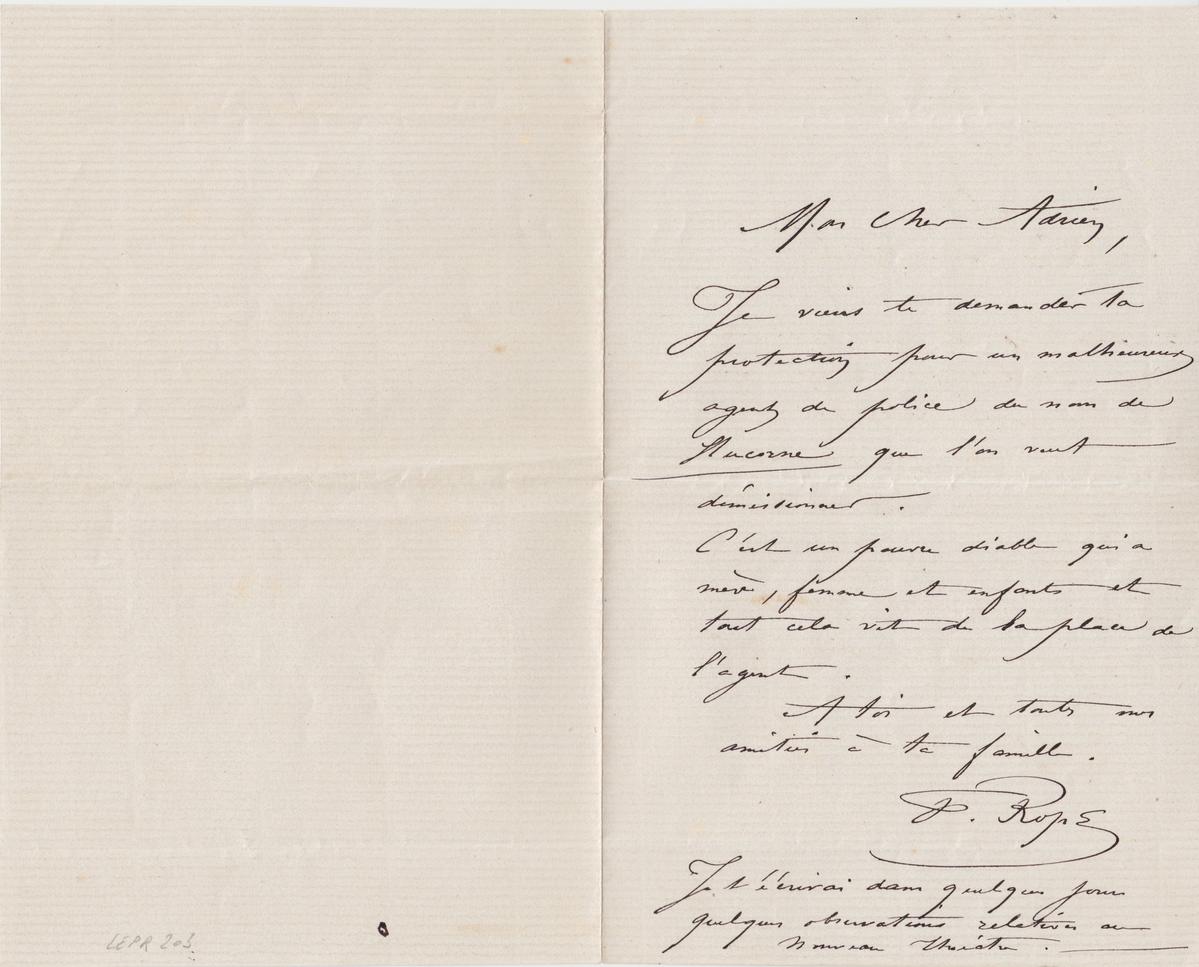 Mon cher Adrien,
Je viens te demander ta
protection pour un malheureux
agent de police du nom de
Hucorne que l'on veut
démissionner.
C'est un pauvre diable qui a
mère, femme et enfants et
tout cela vit de la place de
l'agent.
A toi et toutes mes
amitiés à ta famille.
F. Rops
Je t'écrirai dans quelques jours
quelques observations relatives au
Nouveau théâtre.
LEPR 203